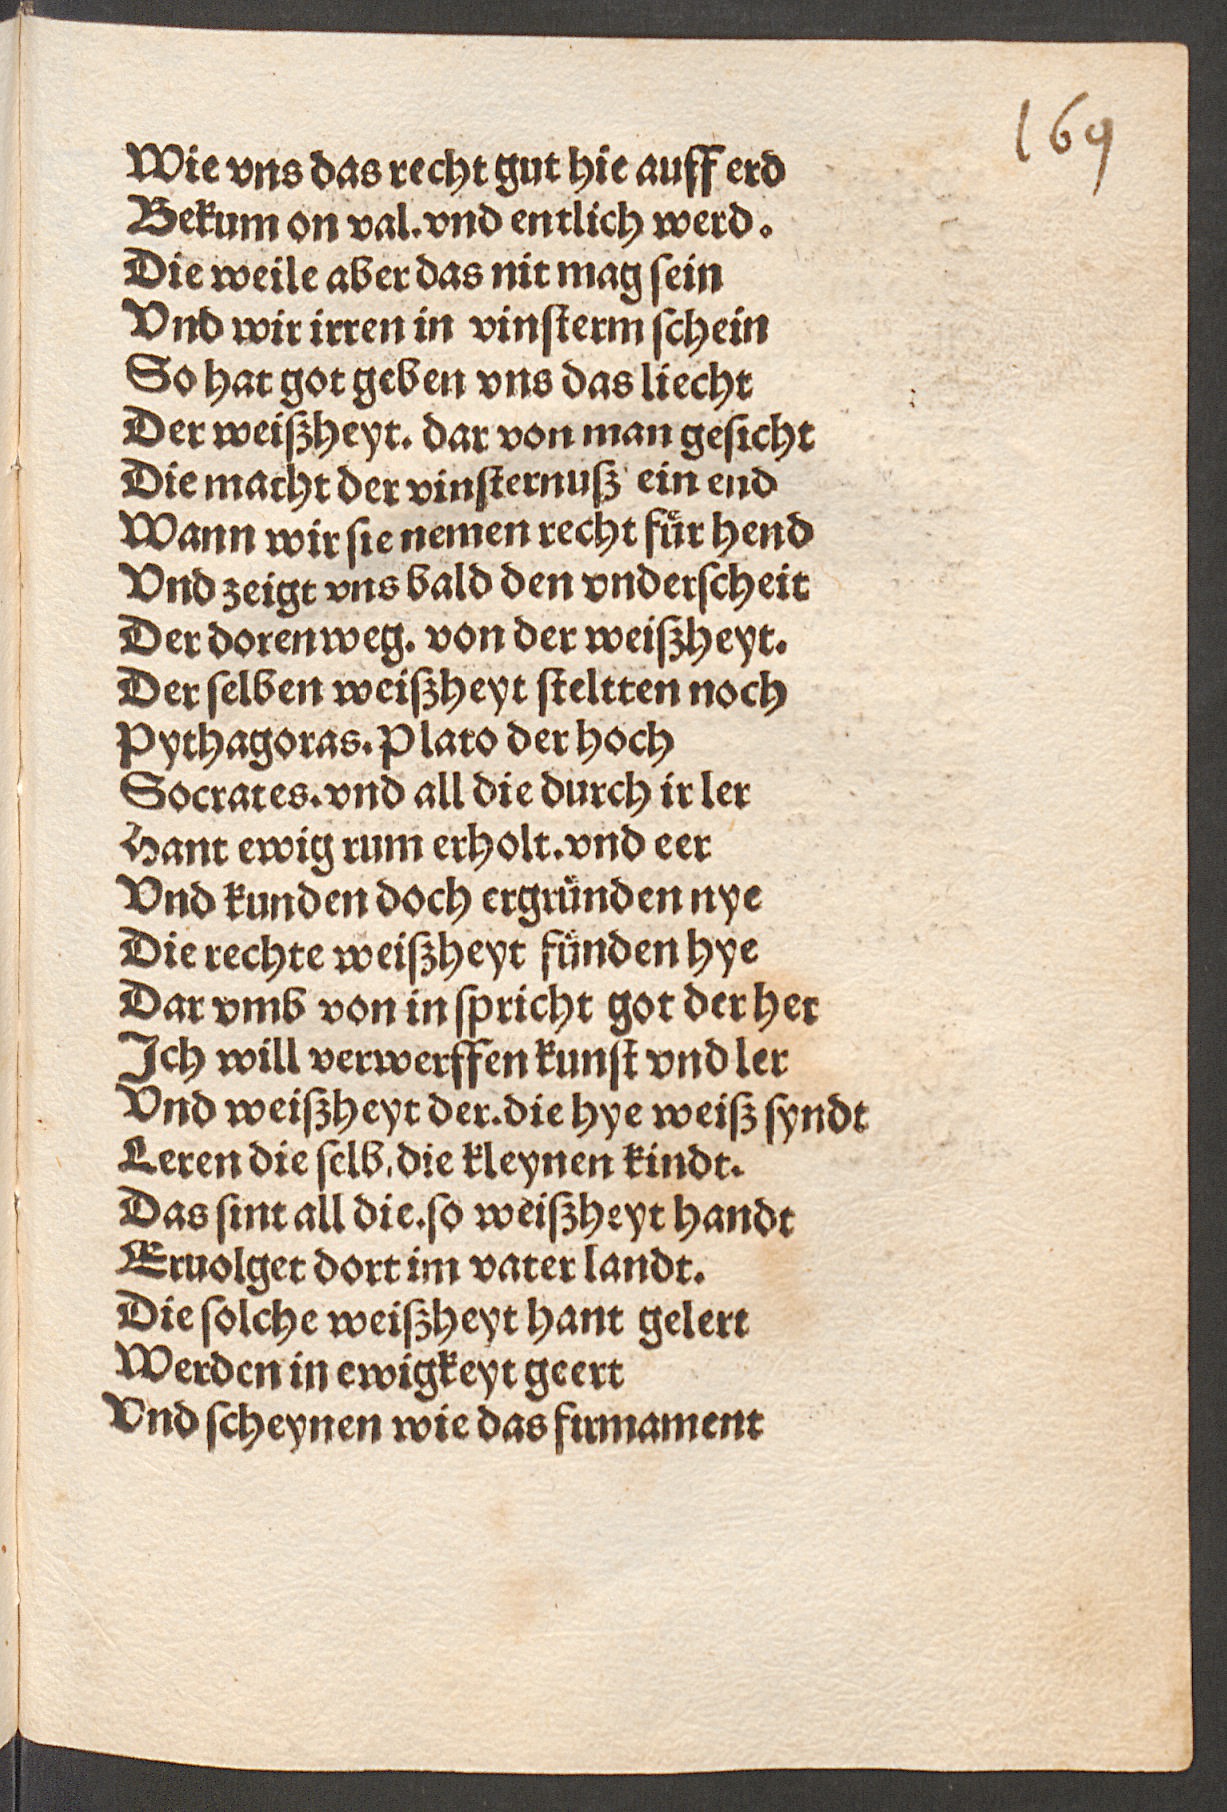 169
Wie vns das recht gut hie auff erd
Bekum on val. vnd entlich werd.
Die weile aber das nit mag ſein
Vnd wir irren in vinſterm ſchein
So hat got geben vns das liecht
Der weiſzheyt. dar von man geſicht
Die macht der vinſternuſz ein end
Wann wir ſie nemen recht fuͤr hend
Vnd zeigt vns bald den vnderſcheit
Der doren weg. von der weiſzheyt.
Der ſelben weiſzheyt ſteltten noch
Pythagoras. Plato der hoch
Socrates. vnd all die durch ir ler
Hant ewig rum erholt. vnd eer
Vnd kunden doch ergruͤnden nye
Die rechte weiſzheyt fuͤnden hye
Dar vmb von in ſpricht got der her
Ich will verwerffen kunſt vnd ler
Vnd weiſzheyt der. die hye weiſz ſyndt
Leren die ſelb, die kleynen kindt.
Das ſint all die. ſo weiſzheyt handt
Eruolget dort im vater landt.
Die ſolche weiſzheyt hant gelert
Werden in ewigkeyt geert
Vnd ſcheynen wie das firmament